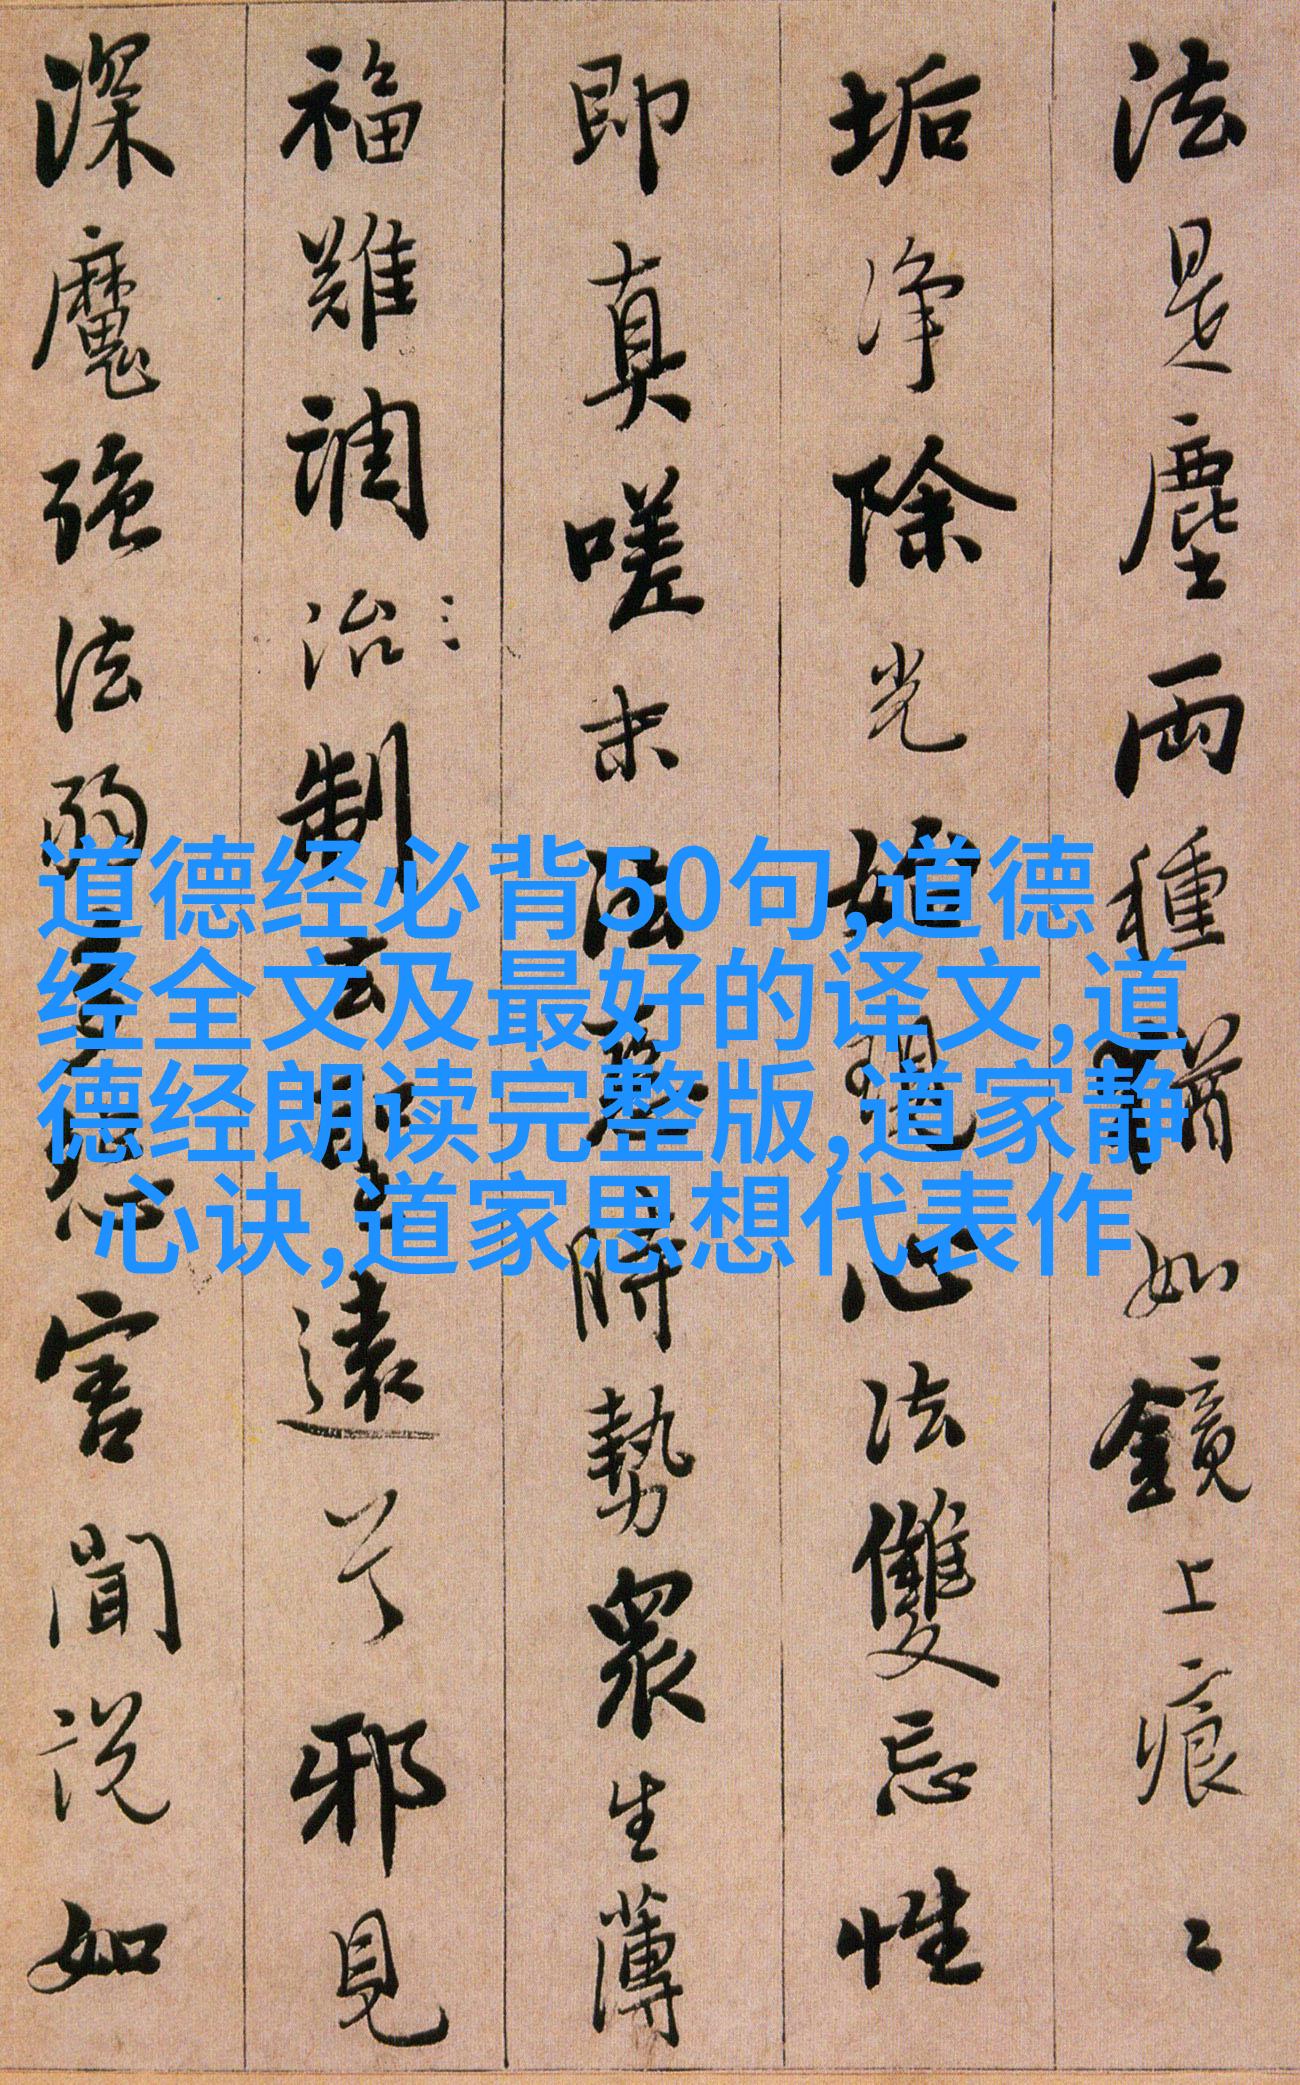 法是塵兩種猶如鏡上痕〻
垢淨除光始現心法雙忘性
即真嗟末法惡時勢衆生薄
福難調治制去聖遠兮邪見
深魔強法弱多害聞説如
道德经必背50句,道德
经全文及最好的译文,道
德经朗读完整版,道家静
心诀,道家思想代表作